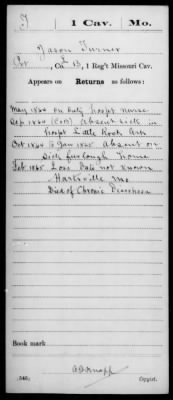 T | 1 Cav. | Mo.
Jason Turner
Pvt, Co. B, 1 Reg't Missouri Cav.
Appears on Returns as follows:
May 1864 on duty hospt nurse
Sep 1864 absent sick in
hospt Little Rock Ark
Oct 1864 to Jan 1865 absent on
sick furlough home
Feb 1865 Loss Date not known
Hartville Mo
Died of Chronic Diarrhoea
Book mark
(546) Copyist.